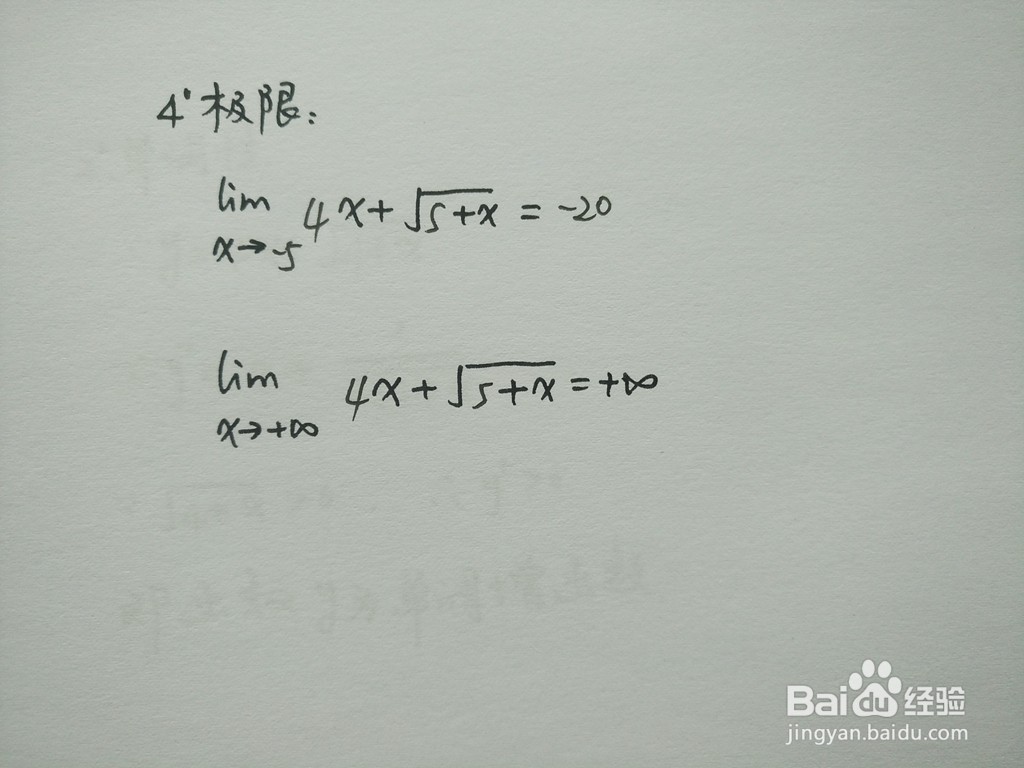 4° 极限:
lim 4x+√5+x = -20
x→-5
lim 4x+√5+x = +∞
x→+∞
Baidu经验
jingyan.baidu.com